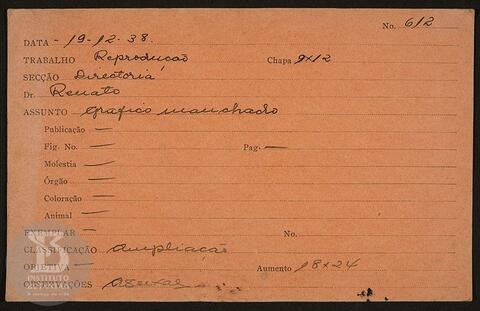 No. 612
DATA - 19-12-38.
TRABALHO Reproducão Chapa 9x12
SECÇÃO Directoria
Dr. Renato
ASSUNTO Grafico manchado
Publicação —
Fig. No. — Pag. —
Molestia —
Órgão —
Coloração —
Animal —
EXEMPLAR — No.
CLASSIFICAÇÃO Ampliacão
OBJETIVA — Aumento 18x24
OBSERVAÇÕES
INSTITUTO